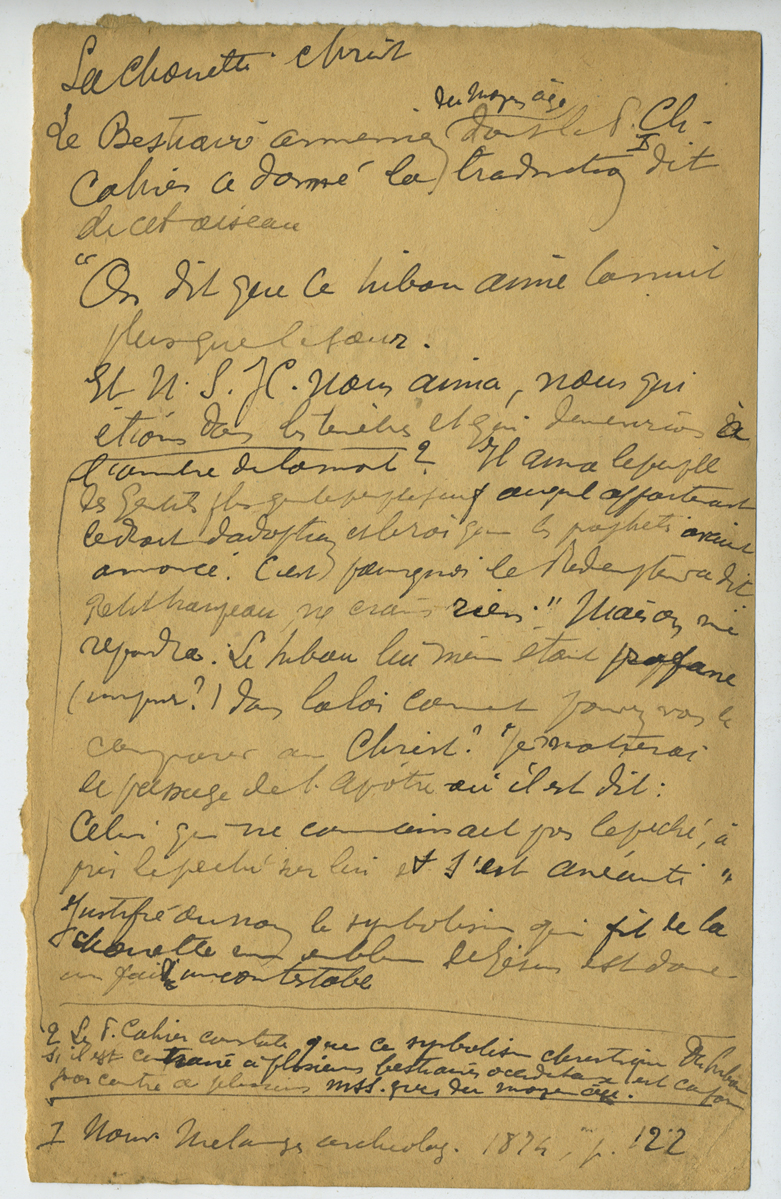 La chouette. Christ
du Moyen age
Le Bestiaire armenien dont le P. Ch.
Cahier a donné la traduction I dit
de cet oiseau
"On dit que le hibou aime la nuit
plus que le jour.
Et N. S. J C. nous aima, nous qui
étions dans les ténèbres et qui demeurions à
l'ombre de la mort 2 Il aima le peuple
des Gentils plus que le peuple juif auquel appartenait
le droit d'adoption et le roi que les prophetes avaient
annoncé. C'est pourquoi le Redempteur a dit
Petit troupeau, ne crains rien." Mais on me
repondra. Le hibou lui même etait profane
(impur?) dans la loi comment pouvez vous le
comparer au Christ? "Je montrerai
le passage de l'Apôtre où il est dit:
Celui qui ne connaissait pas le peché, a
pris le peché sur lui et s'est anéanti "
Justifié ou non le symbolisme qui fit de la
chouette un emblème de Jésus est donc
un fait incontestable
2 Le P. Cahier constate que ce symbolisme christique du hibou
s'il est à plusieurs bestiaires occidentaux est
par contre a plusieurs mss. grecs du moyen âge.
I Nouv Melanges archeolog. 1874, p. 122